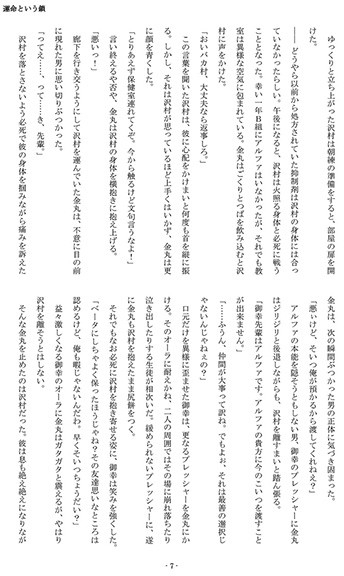 運命という鎖
ゆっくりと立ち上がった沢村は朝練の準備をすると、部屋の扉を開
けた。
――どうやら以前から処方されていた抑制剤は沢村の身体には合っ
ていなかったらしい。午後になると、沢村は火照る身体と必死に戦う
こととなった。幸い一年B組にアルファはいなかったが、それでも教
室は異様な空気に包まれている。金丸はごくりとつばを飲み込むと沢
村に声をかけた。
「おいバカ村、大丈夫なら返事しろ。」
この言葉を聞いた沢村は、彼に心配をかけまいと何度も首を縦に振
る。しかし、それは沢村が思っているほど上手くはいかず、金丸は更
に顔を青くした。
「とりあえず保健室連れてくぞ。今から触るけど文句言うなよ！」
言い終わるや否や、金丸は沢村の身体を横抱きに抱え上げる。
「悪いっ！」
廊下を行き交うようにして沢村を運んでいた金丸は、不意に目の前
に現れた男に思い切りぶつかった。
「ってぇ……、って……き、先輩。」
沢村を落とさないよう必死で彼の身体を掴みながら痛みを訴えた
金丸は、次の瞬間ぶつかった男の正体に気づき固まった。
「悪ぃけど、そいつ俺が預かるから渡してくれねぇ？」
アルファの本能を隠そうともしない男、御幸のプレッシャーに金丸
はジリジリと後退しながらも、沢村を離すまいと踏ん張る。
「御幸先輩はアルファです。アルファの貴方に今のこいつを渡すこと
が出来ません。」
「……ふうん、仲間が大事って訳ね。でもよぉ、それは最善の選択じ
ゃないんじゃねぇの？」
口元だけを異様に歪ませた御幸は、更なるプレッシャーを金丸にか
ける。そのオーラに耐えかね、二人の周囲ではその場に崩れ落ちたり
泣き出したりする生徒が相次いだ。緩められないプレッシャーに、遂
に金丸も沢村を抱えたまま尻餅をつく。
それでもなお必死に沢村を抱き寄せる姿に、御幸は笑みを強くした。
「ベータにしちゃよく保ったほうじゃね？その友達思いなところは
認めるけど、俺も暇じゃないんだわ。早くそいつちょうだい？」
益々激しくなる御幸のオーラに金丸はガタガタと震えるが、やはり
沢村を離そうとはしない。
そんな金丸を止めたのは沢村だった。彼は息も絶え絶えになりながら
- 7 -